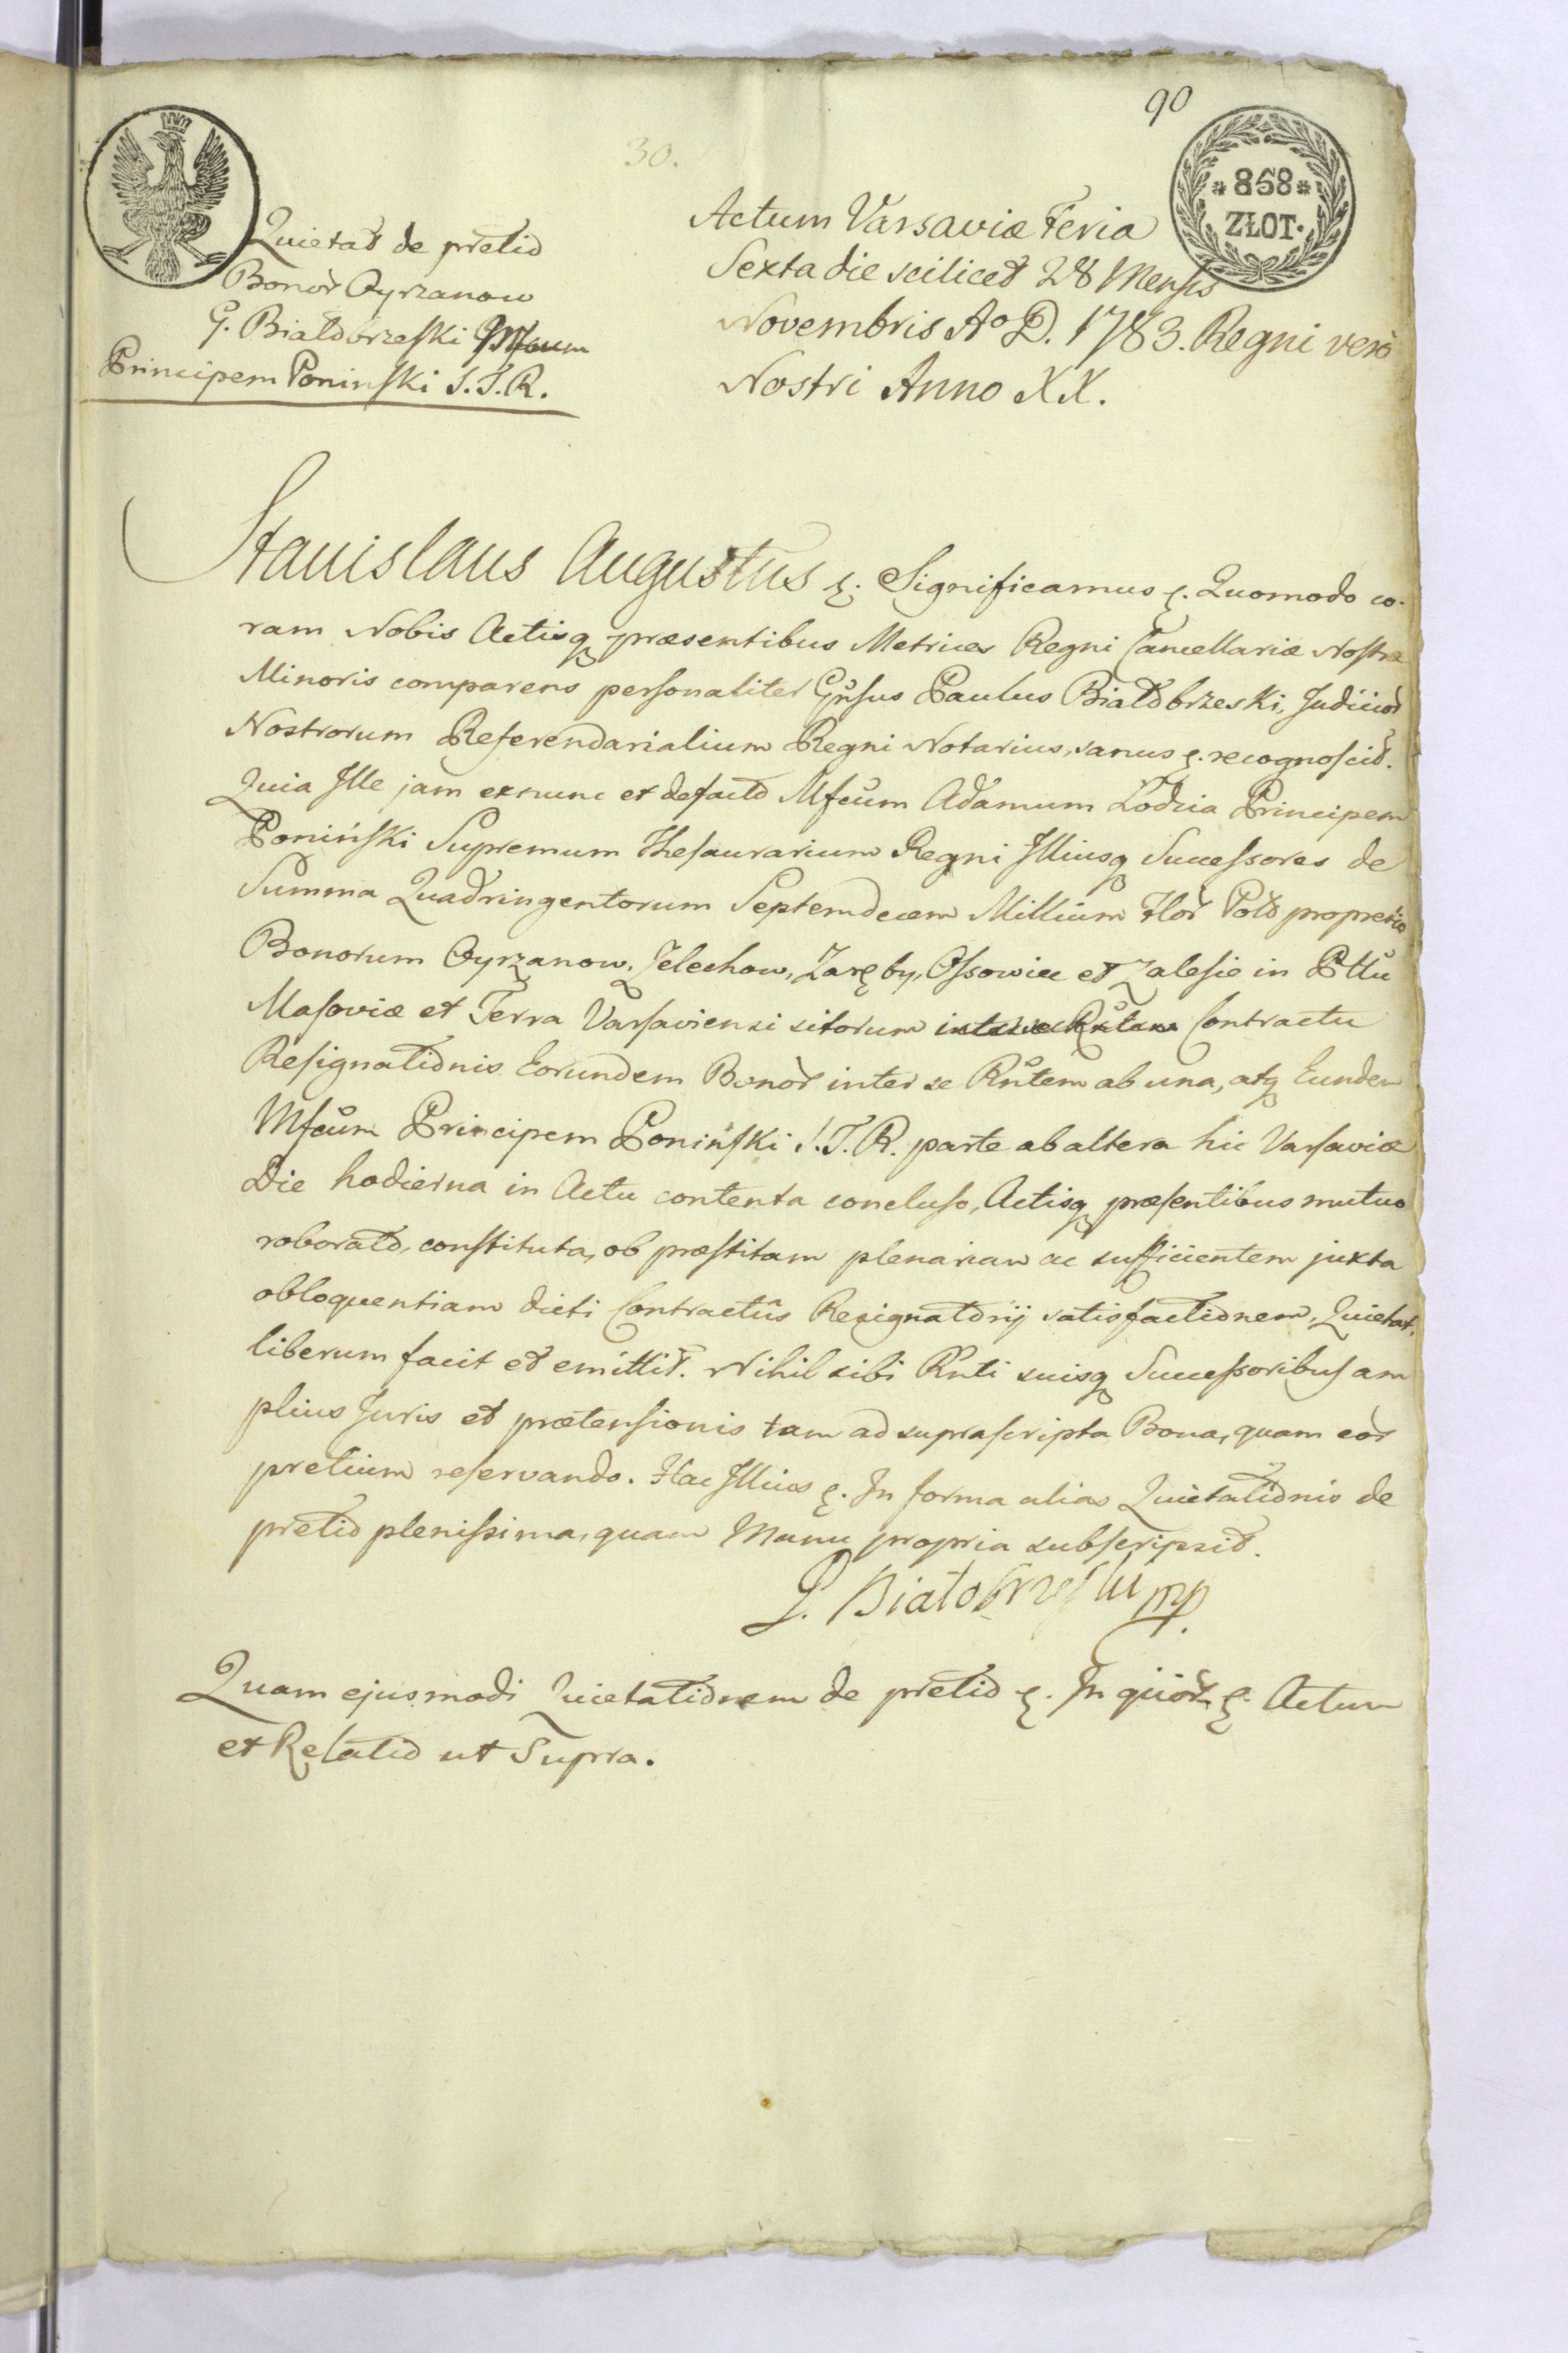 90
30.
* 868 *
ZŁOT.
Quietat de pretio
Bonor Oyrzanow
G. Białobrzeski Mfcum
Principem Poninski S. T. R.
Actum Varsaviæ Feria
Sexta die scilicet 28 Mensis
Novembris Aº D. 1783. Regni verò
Nostri Anno XX.
Stanislaus Augustus &. Significamus &. Quomodo co-
ram Nobis Actisq præsentibus Metrices Regni Cancellariæ Nostræ
Minoris comparens personaliter Gnsus Paulus Białobrzeski, Judicior
Nostrorum Referendarialium Regni Notarius, sanus &. recognoscit.
Quia Ille jam exnunc et defacto Mfcum Adamum Lodzia Principem
Poniński Supremum Thesaurarium Regni Illiusq Successores de
Summa Quadringentorum Septemdecem Millium Flor Pol pro pretio
Bonorum Oyrzanow, Zelechow, Zaręby, Ossowiec et Zalesie in Pttu
Masoviæ et Terra Varsaviensi sitorum Contractu
Resignationis Eorundem Bonor inter se Rntem ab una, atq Eundem
Mfcum Principem Poniński S. T. R. parte ab altera hic Varsaviæ
Die hodierna in Actu contenta concluso, Actisq præsentibus mutuo
roborato, constituta, ob præstitam plenariam ac sufficientem juxta
obloquentiam dicti Contractûs Resignatorij satisfactionem, Quietat,
liberum facit et emittit. Nihil sibi Rnti suisq Successoribus am
plius Juris et prætensionis tam ad suprascripta Bona, quam eor
pretium reservando. Hac Illius &. In forma alias Quietationis de
pretio plenissima, quam Manu propria subscripsit.
P. Białobrzeski mp.
Quam ejusmodi Quietationem de pretio &. In quor &. Actum
et Relatio ut Supra.